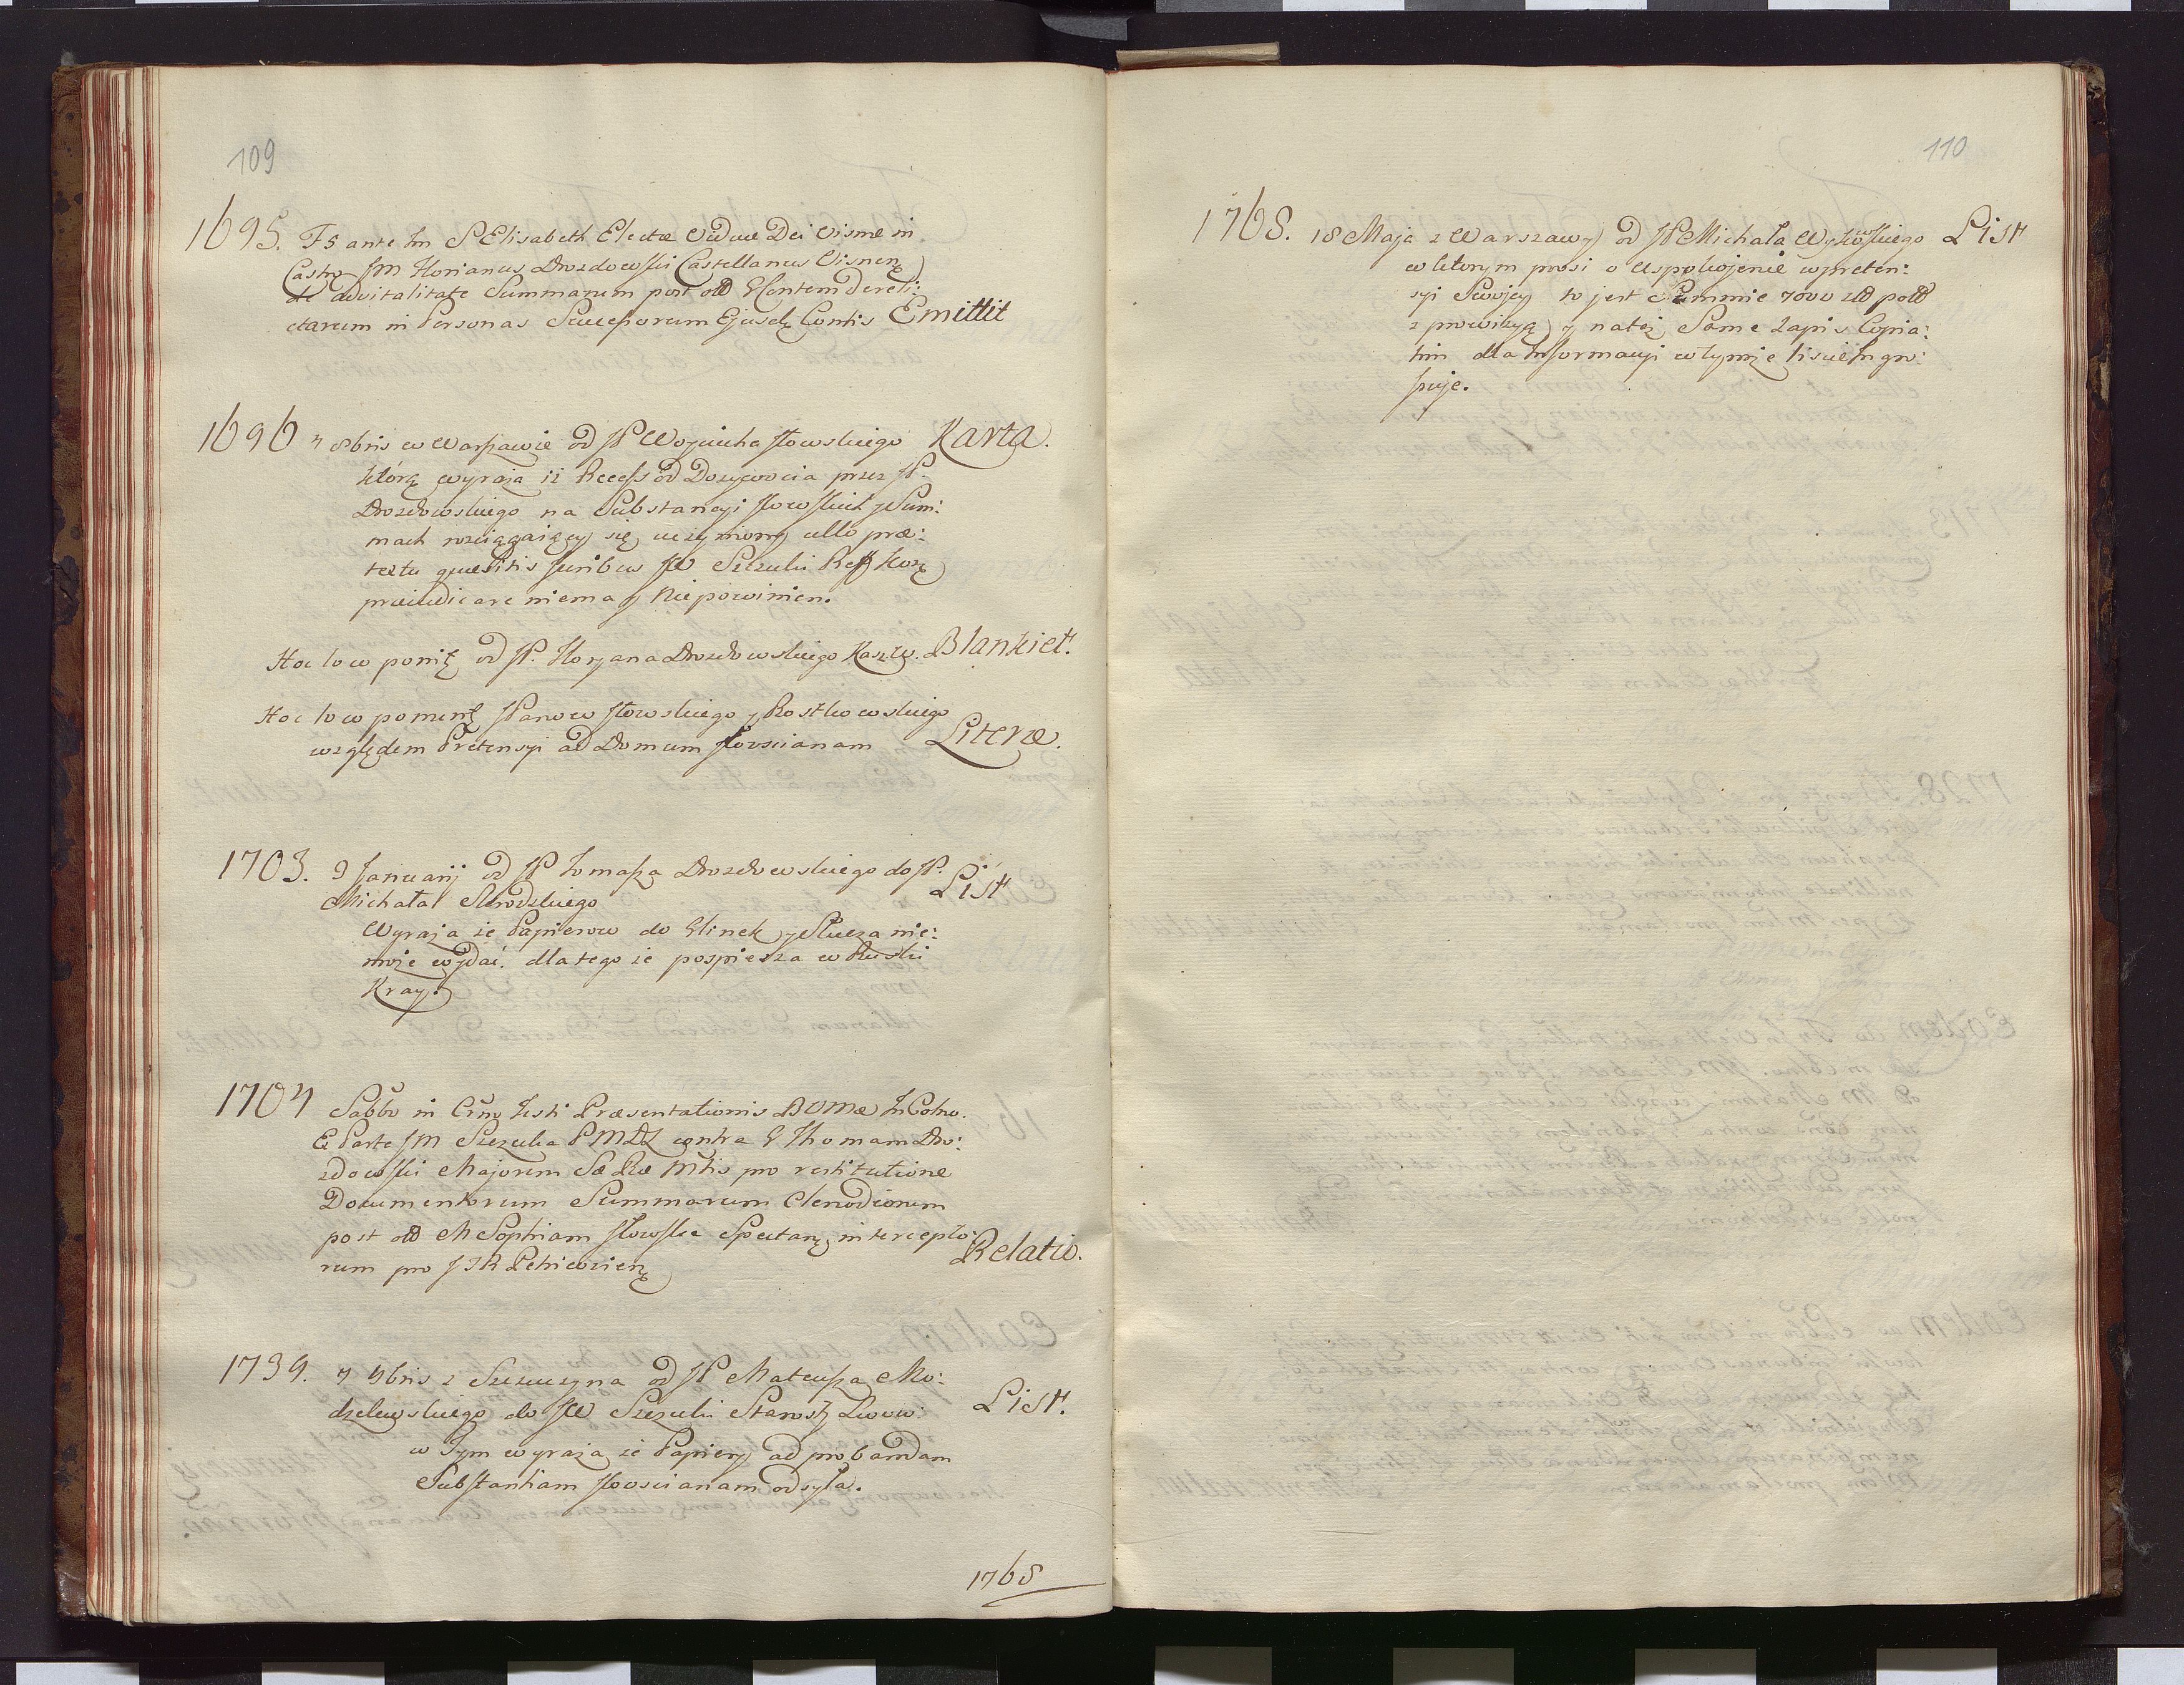 109
1695. Fs ante fm S Elisabeth Electæ Viduæ Dei Visnæ in
Castro JM Florianus Drozdowski Castellanus Visneñ
de advitalitate Summarum post olđ Glentem dereli:
ctarum in Personas Succeſsorum Ejusdę Contis Emittit
1696 7 8bris w Warſzawie od JP Woyciecha Jłowskiego Karta.
którą wyraża iż Receſs od Dożywocia przez JP.
Drozdowskiego na Substancyi Jłowſkich y Sum:
mach rosciągaiący się uczyniony ullo præ:
textu quæsitis Juribus JW Szczuki Reff Korę
præiudicare niema y Niepowinien.
Hoc 10 w ponię od JP. Floryana Drozdowskiego Kaszw. Blankiet.
Hoc 10 w ponienę JPanow Jłowskiego y Rostkowskiego
względem Pretensyi ad Domum Jłovscianam Literæ.
1703. 9 Januarij od JP Tomaſza Drozdowskiego do JP.
Michała Skrodzkiego List
Wyraża że Papierow do Glinek y Słucza nie:
może wydać. dlatego że pospiesza w Ruski
Kray.
1704 Sabbo in Crño Festi Præsentationis BVMæ in Colno.
E Parte JM Szczuka PMDL contra G Thomam Dro:
zdowski Majorem Sæ Ræ Mtis pro restitutione
Documentorum Summarum Clenodiorum
post olđ M Sophiam Jłowſka Spectanę intercepto:
rum pro JJR Petricovieñ Relatio.
1739. 7 9bris z Szczuczyna od JP Mateuſza Mo:
dzelewskiego do JW Szczuki Starosty Lwow: List.
w Tym wyraża że Papiery ad probandam
Subſtantiam Jłovscianam odsyła.
1768
110
1768. 18 Maja z Warszawy od JP Michała Wykowſkiego List
w ktorym prosi o Uspokojenie wpreten:
syi Swojey to jest Summie 7000 złđ polđ
z prowizyą y natęż Same Zapis Copia:
tim dla Informacyi wtymże liscie Ingro:
ſsuje.